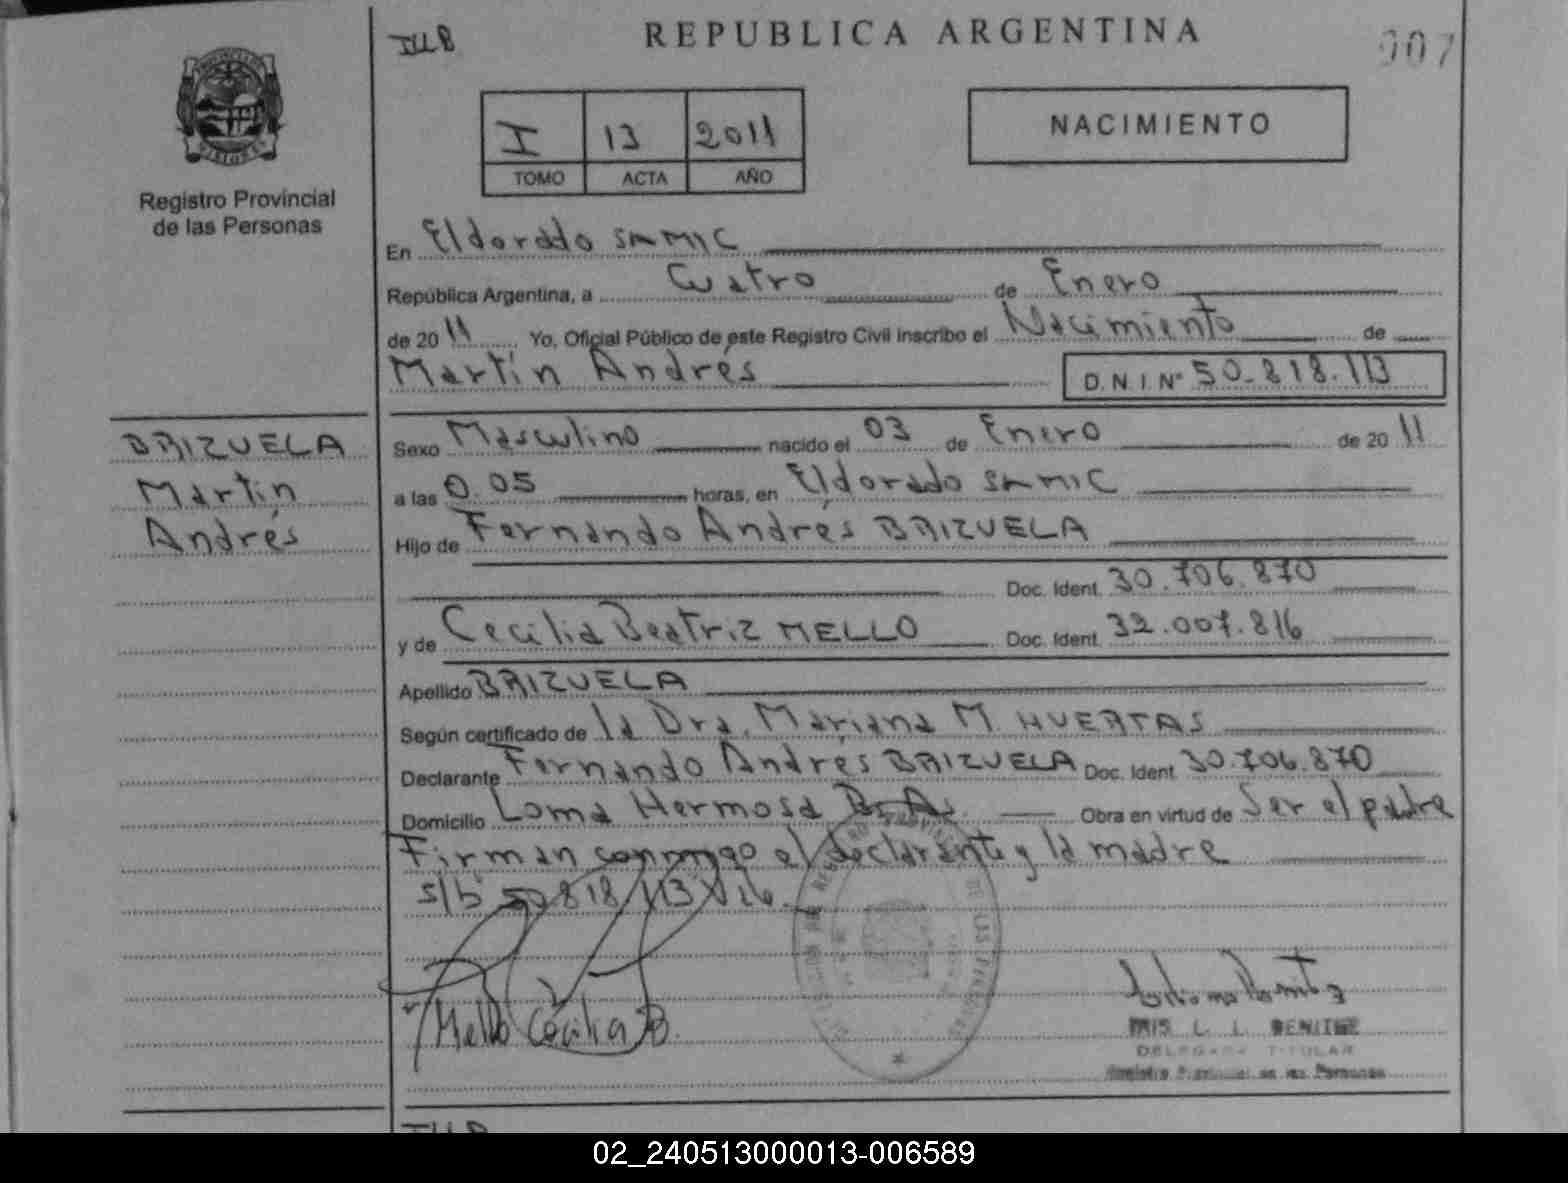 REPUBLICA ARGENTINA
007
I 13 2011
TOMO ACTA AÑO
NACIMIENTO
Registro Provincial
de las Personas
En Eldorado SAMIC
República Argentina, a Cuatro de Enero
de 2011 Yo, Oficial Público de este Registro Civil inscribo el Nacimiento de
Martín Andrés D.N.I. Nº 50.818.113
BRIZUELA
Martín
Andrés
Sexo Masculino nacido el 03 de Enero de 2011
a las 0.05 horas, en Eldorado SAMIC
Hijo de Fernando Andrés BRIZUELA
Doc. Ident. 30.706.870
y de Cecilia Beatriz MELLO Doc. Ident. 32.007.816
Apellido BRIZUELA
Según certificado de la Dra. Mariana M. HUERTAS
Declarante Fernando Andrés BRIZUELA Doc. Ident 30.706.870
Domicilio Loma Hermosa Bs As Obra en virtud de Ser el padre
Firman conmigo el declarante y la madre
s/b 50.818.113
Mello Cecilia B.
DELEGADA TITULAR
Registro Provincial de las Personas
02_240513000013-006589